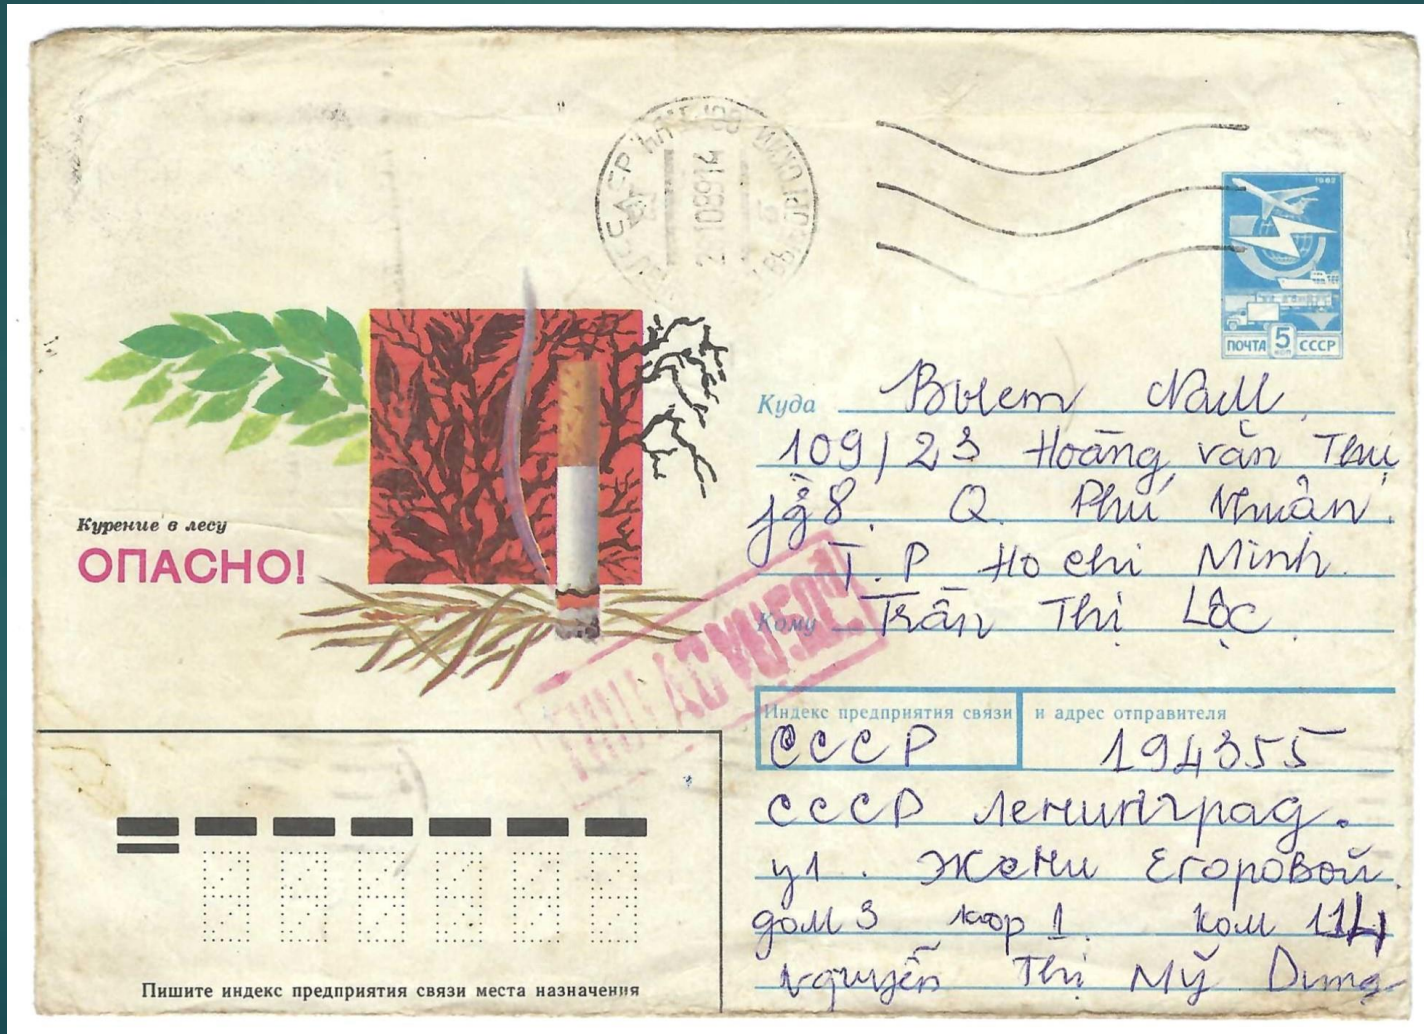 1982
ПОЧТА 5 КОП СССР
Куда Вьет Nам.
109/23 Hoàng văn Thụ
f 8. Q. Phú Nhuận.
T.P Ho chi Minh.
Кому Trần Thị Lộc.
Курение в лесу
ОПАСНО!
Индекс предприятия связи и адрес отправителя
СССР 194355
СССР Ленинград.
ул. Жени Егоровой.
дом 3 кор 1. ком 114
Nguyễn Thị Mỹ Dung
Пишите индекс предприятия связи места назначения